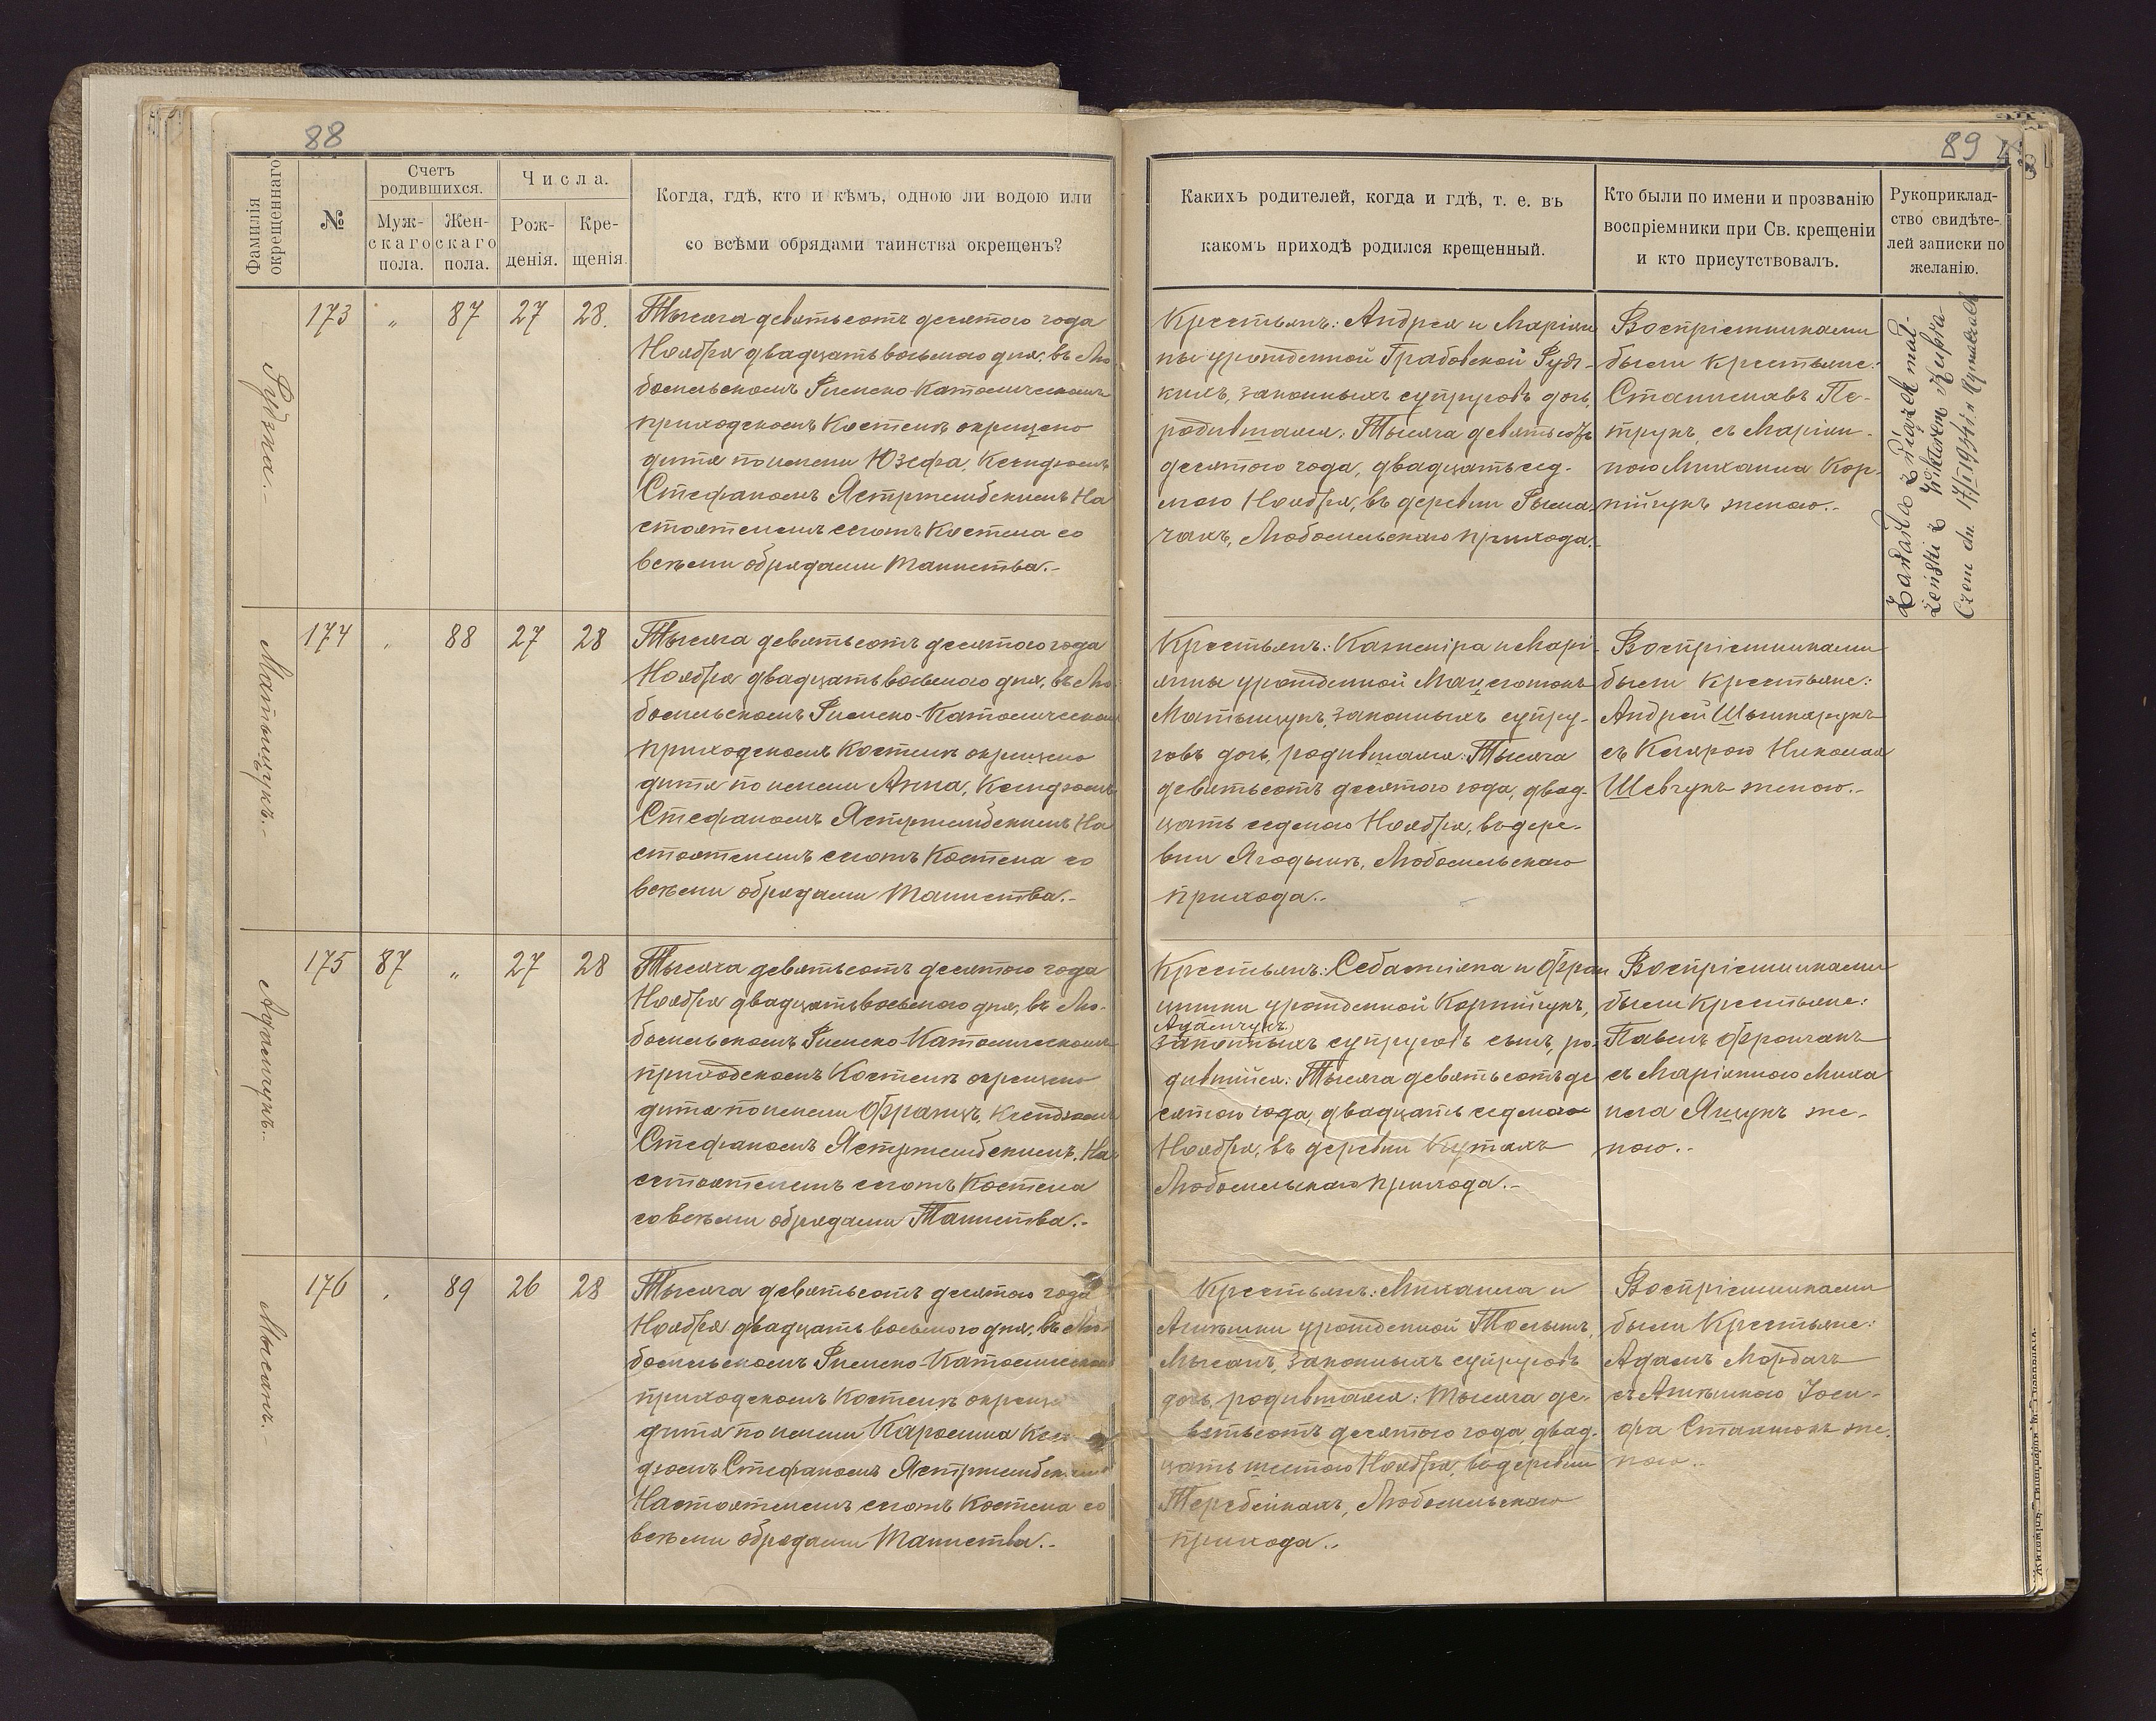 88
Фамилія
окрещеннаго
№
Счетъ
родившихся.
Муж-
скаго
пола.
Жен-
скаго
пола.
Числа.
Рож-
денія.
Кре-
щенія.
Когда, гдѣ, кто и кѣмъ, одною ли водою или
со всѣми обрядами таинства окрещенъ?
Рудзка.-
173 „ 87 27 28.
Тысяча девятьсотъ десятого года
Ноября двадцать восьмого дня, въ Лю-
бомльскомъ Римско-Католическомъ
приходскомъ Костелѣ окрещено
дитя по имени Юзефа, Ксендзомъ
Стефаномъ Ястржембскимъ На
стоятелемъ сего Костела со
всѣми обрядами Таинства.-
Матыщукъ.-
174 „ 88 27 28
Тысяча девятьсотъ десятого года
Ноября двадцать восьмого дня, въ Лю-
бомльскомъ Римско-Католическомъ
приходскомъ Костелѣ окрещено
дитя по имени Анна, Ксендзомъ
Стефаномъ Ястржембскимъ На
стоятелемъ сего Костела со
всѣми обрядами Таинства.-
Адамчукъ.-
175 87 „ 27 28
Тысяча девятьсотъ десятого года
Ноября двадцать восьмого дня, въ Лю-
бомльскомъ Римско-Католическомъ
приходскомъ Костелѣ окрещено
дитя по имени Францъ, Ксендзомъ
Стефаномъ Ястржембскимъ, На-
стоятелемъ сего Костела
со всѣми обрядами Таинства.-
176 „ 89 26 28
Тысяча девятьсотъ десятого года
Ноября двадцать восьмого дня, въ Лю-
бомльскомъ Римско-Католическомъ
приходскомъ Костелѣ
дитя по имени Каролина Ксен
дзомъ Стефаномъ Ястржембскимъ
Настоятелемъ сего Костела со
всѣми обрядами Таинства.-
89
Какихъ родителей, когда и гдѣ, т. е. въ
какомъ приходѣ родился крещенный.
Кто были по имени и прозванію
воспріемники при Св. крещеніи
и кто присутствовалъ.
Рукоприклад-
ство свидѣте-
лей записки по
желанію.
Крестьянъ: Андрея и Маріян
ны урожденной Грабовской Рудз-
кихъ, законныхъ супруговъ дочь,
родившаяся: Тысяча девятьсотъ
десятого года, двадцать сед-
мого Ноября, въ деревни Рыма-
чахъ, Любомльскаго прихода.-
Воспріемниками
были Крестьяне:
Станиславъ Пе-
трукъ, съ Маріян-
ною Михаила Кор-
пійчукъ женою.-
Крестьянъ: Казиміра и Марі-
янны урожденной
Матыщукъ, законныхъ супру-
говъ дочь, родившаяся: Тысяча
девятьсотъ десятого года, двад-
цать седмого Ноября, въ дере-
вни Ягодынѣ, Любомльскаго
прихода.-
Воспріемниками
были Крестьяне:
Андрей
съ Клярою Николая
Шевчукъ женою.-
Крестьянъ: Себастіяна и Фран
цишки урожденной Корпійчукъ,
Адамчукъ
законныхъ супруговъ сынъ, ро-
дившійся: Тысяча девятьсотъ де
сятого года, двадцать седмого
Ноября, въ деревни Кутахъ
Любомльскаго прихода.-
Воспріемниками
были Крестьяне:
Павелъ Фрончакъ
съ Маріянною Миха
ила Ящукъ же-
ною.-
Крестьянъ: Михаила и
урожденной
законныхъ супруговъ
дочь, родившаяся: Тысяча де-
вятьсотъ десятого года, двад-
цать шестого Ноября, въ деревни
Теребейкахъ, Любомльскаго
прихода.-
Воспріемниками
были Крестьяне:
Адамъ
Іоси-
фа же-
ною.-